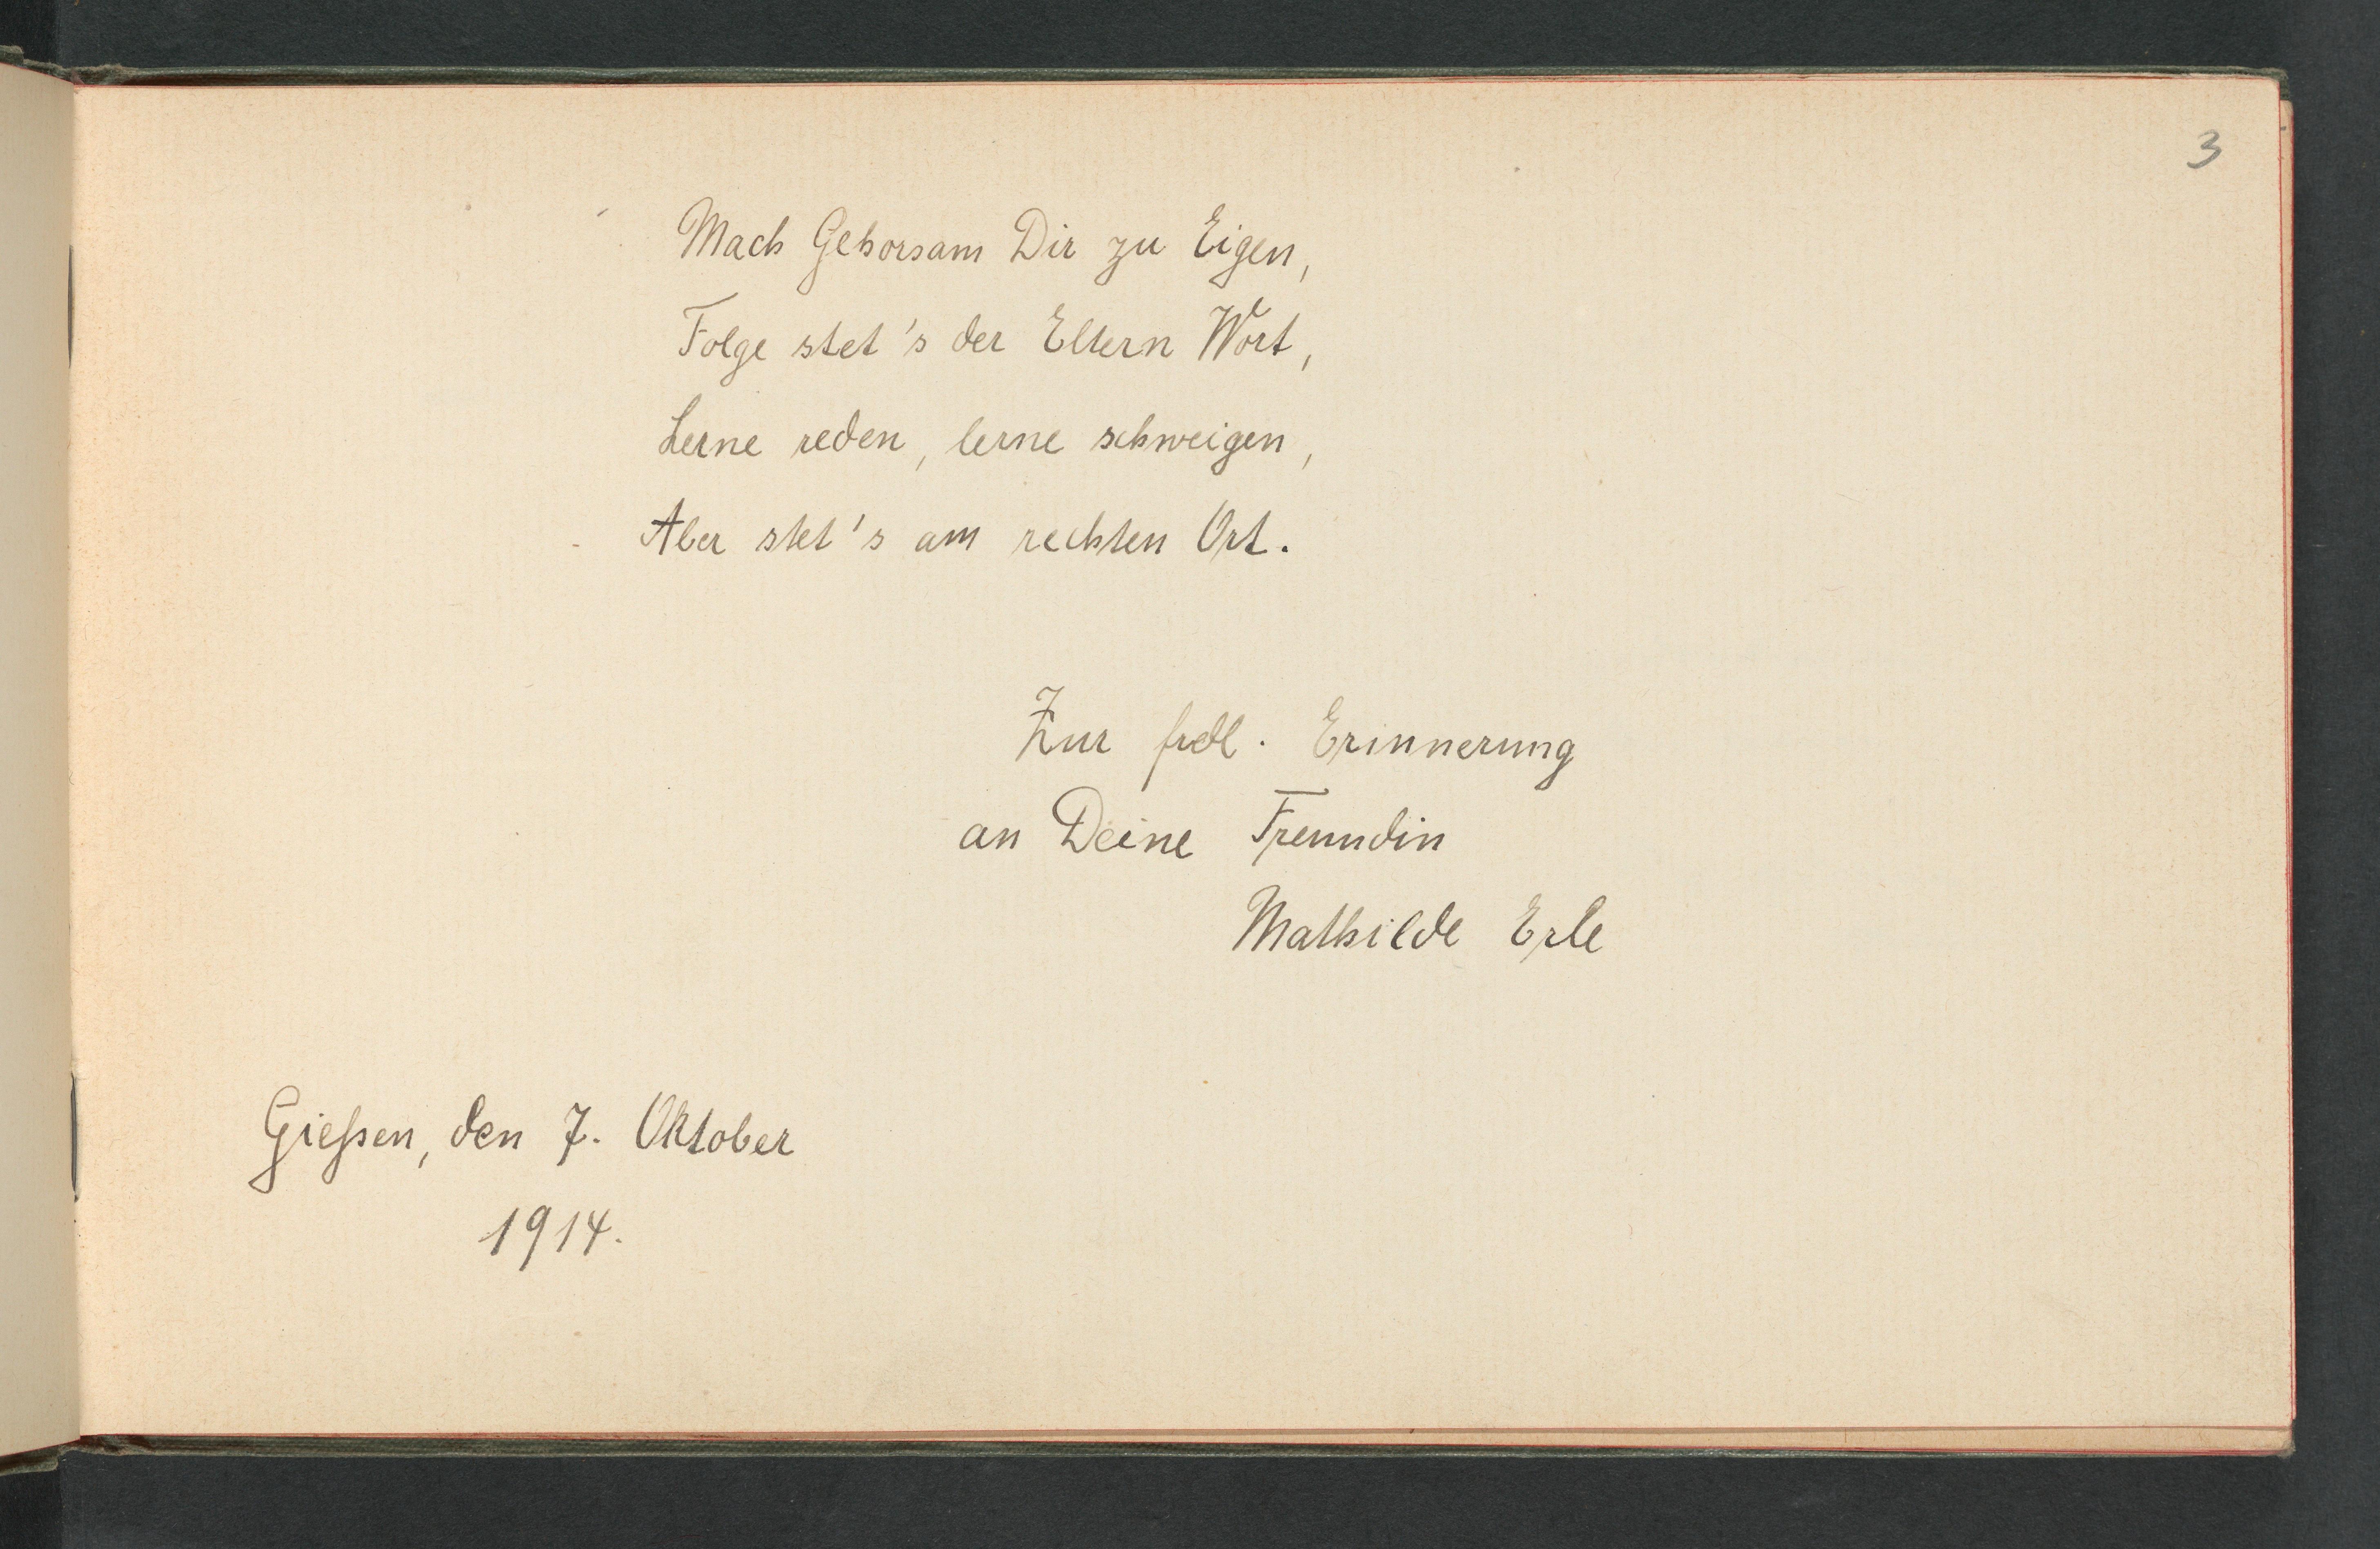 3
Mach Gehorsam Dir zu Eigen,
Folge stet's der Eltern Wort,
Lerne reden, lerne schweigen,
Aber stet's am rechten Ort.
Zur frdl. Erinnerung
an Deine Freundin
Mathilde Erle
Gießen, den 7. Oktober
1914.